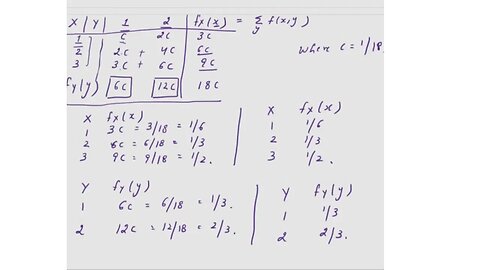 X | Y | 1 2 fx(x) = Σ f(x,y)
y
1 C 2C 3C where c = 1/18.
2 2C + 4C 6C
3 3C + 6C 9C
fy(y) 6C 12C 18C
X fx(x) X fx(x)
1 3C = 3/18 = 1/6 1 1/6
2 6C = 6/18 = 1/3 2 1/3
3 9C = 9/18 = 1/2. 3 1/2.
Y fy(y) Y fy(y)
1 6C = 6/18 = 1/3. 1 1/3
2 12C = 12/18 = 2/3. 2 2/3.